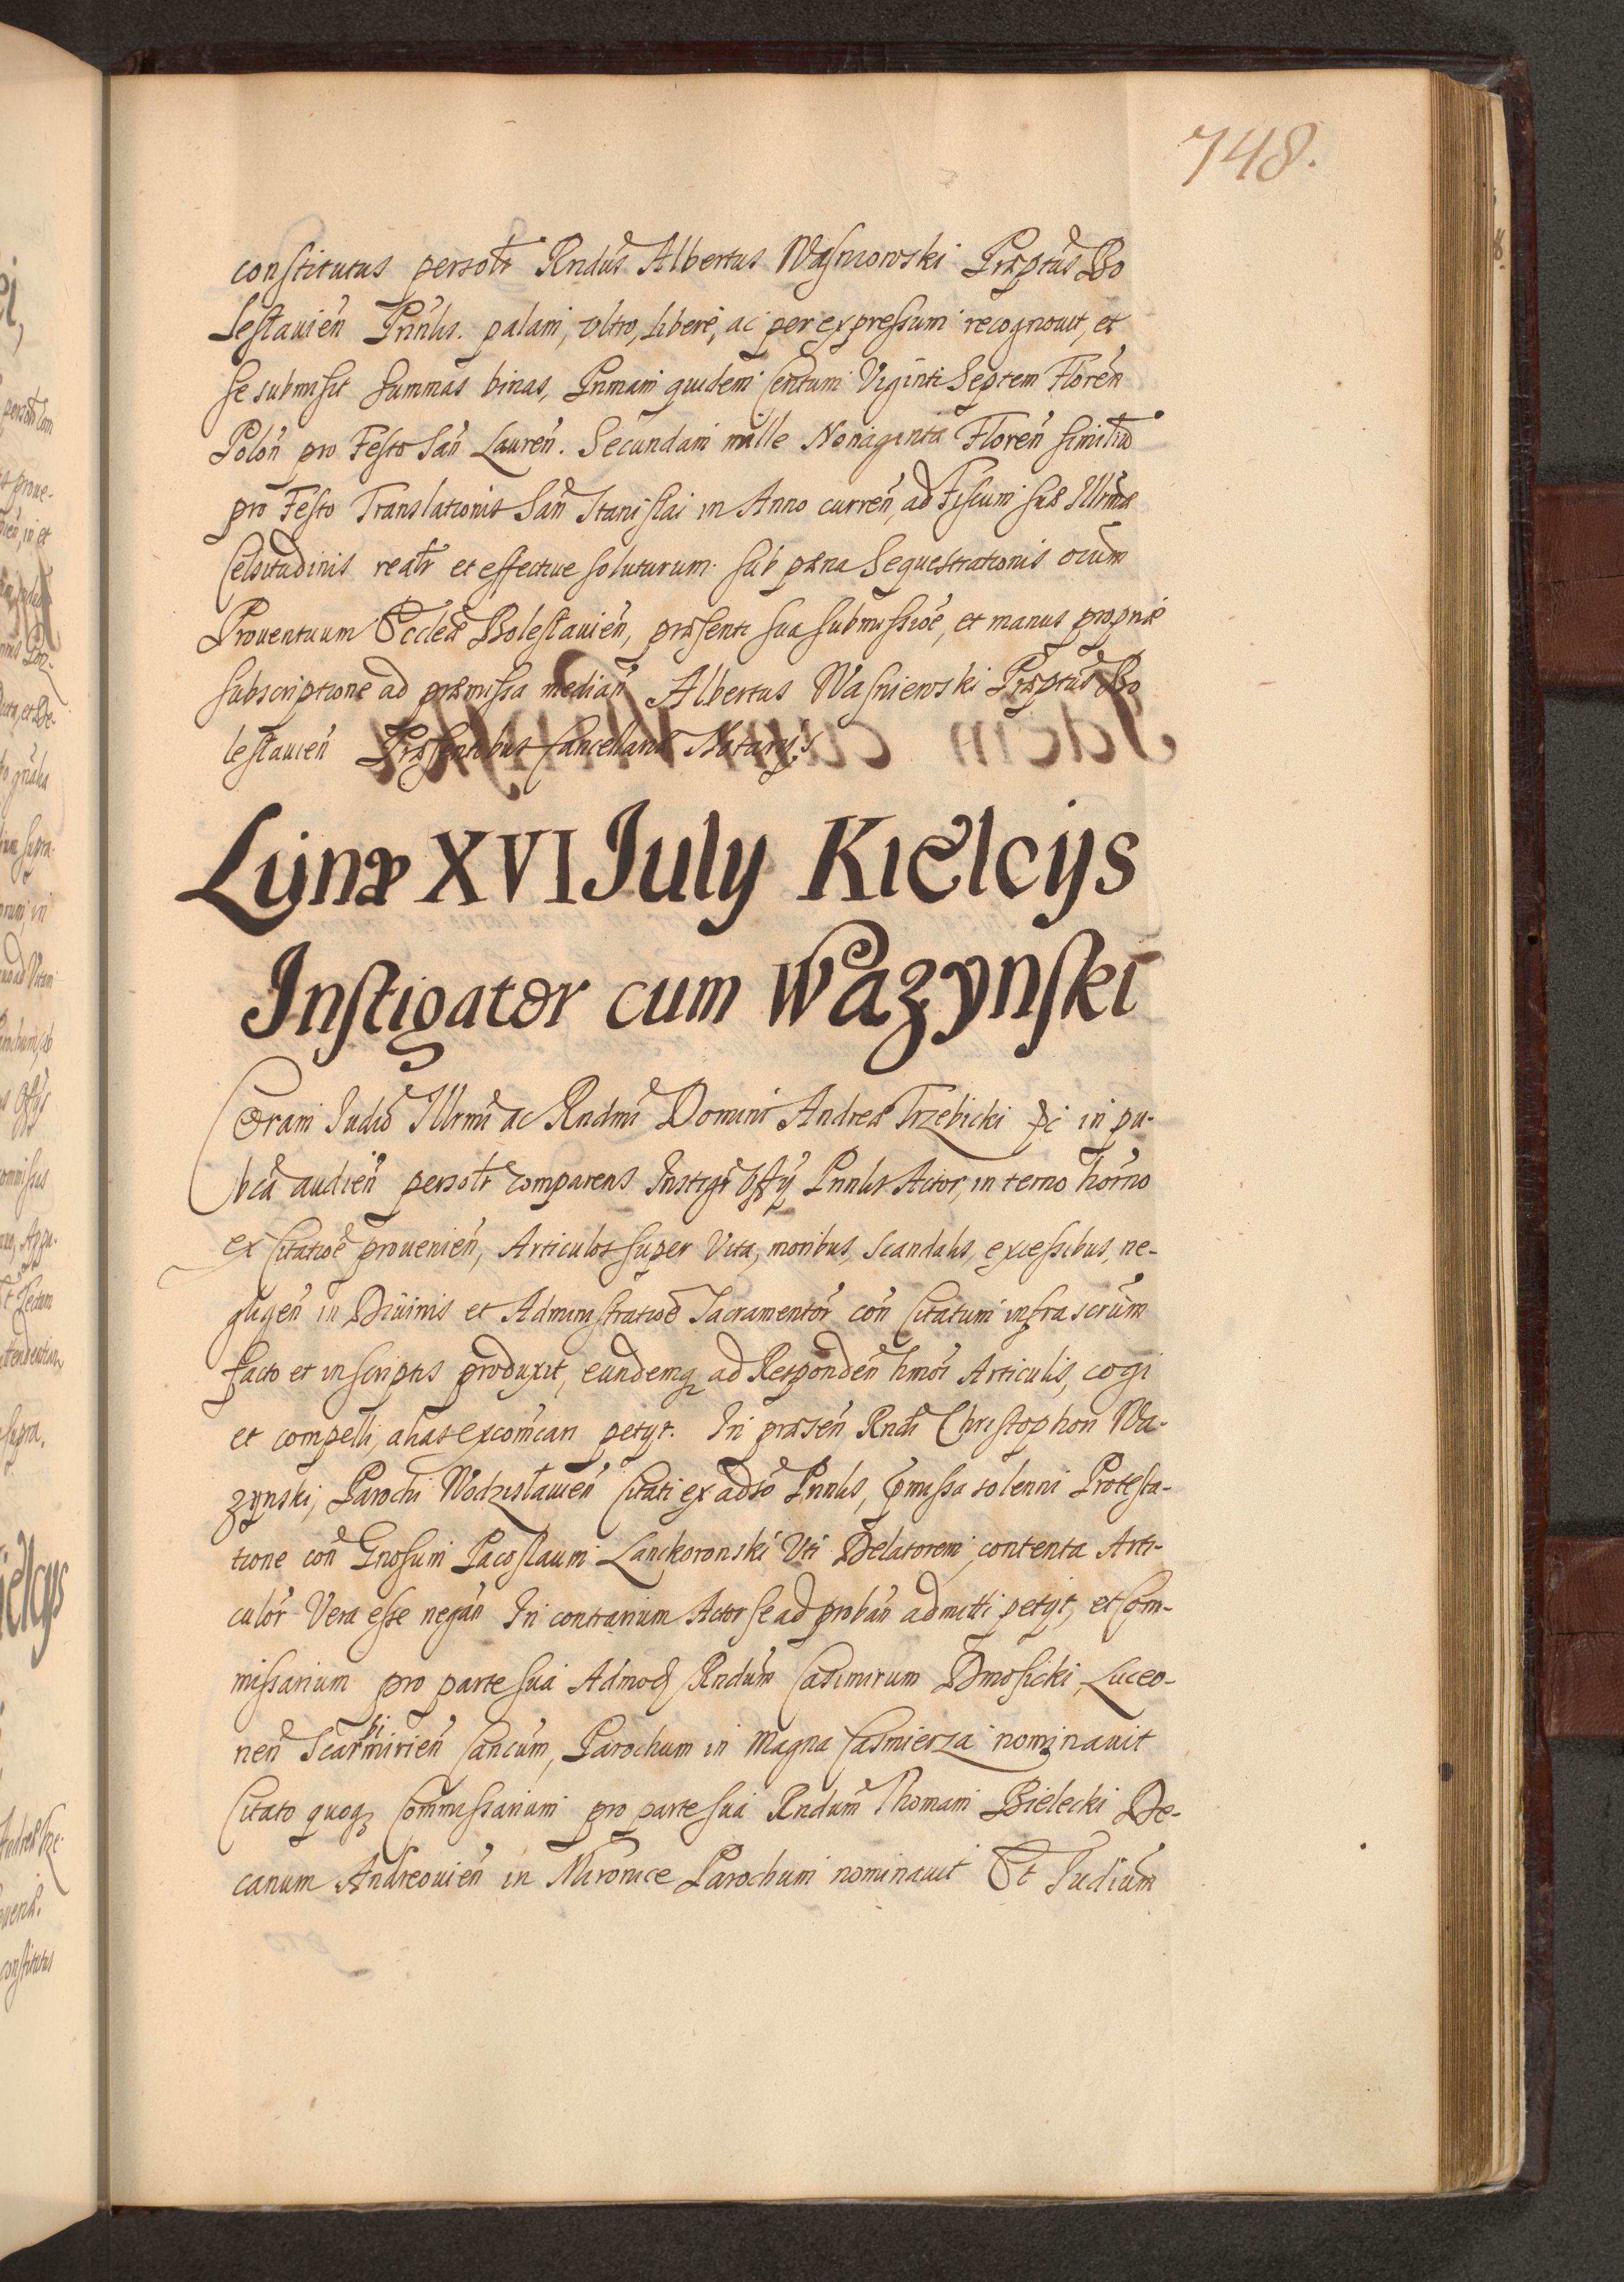 748.
constitutus personlr Rndus Albertus Wasniowski Præptus Bo
leslauien Prinlis. palam, ultro, libere, ac per expressum recognouit, et
se submisit summas binas, Primam quidem Centum Viginti Septem Floren
Polon pro Festo San Lauren. Secundam mille Nonaginta Floren similiu
pro Festo Translationis San Stanislai in Anno curren, ad Fiscum suæ Illrmæ
Celsitudinis realr et effectiue soluturum. sub pæna Sequestrationis oium
Prouentuum Eccleæ Boleslauien, præsenti sua submissioe, et manus propriæ
subscriptione ad præmissa median Albertus Wasniewski Præptus Bo
leslauien Præsentibus Cancellariæ Notarijs
Lunæ XVI July Kielcijs
Instigator cum Wazynski
Coram Judio Illrmi ac Rndmi Domini Andreæ Trzebicki &c in pu-
blca audien personlr comparens Instigr Offy Prinlis Actor, in termo horno
ex Citatioe prouenien, Articulos super Vita, moribus, Scandalis, excessibus, ne-
gligen in Diuinis et Administratioe Sacramentor con Citatum infrascrum
facto et in scriptis produxit, eundemq ad Responden hmoi Articulis, cogi
et compelli, alias excomcari petyt. In præsen Rndi Christophori Wa-
zynski, Parochi Wodzislauien Citati ex adso Prinlis, præmissa solenni Protesta-
tione con Gnosum Pacoslaum Lanckoronski Uti Delatorem, contenta Arti-
culor Vera esse negan In contrarium Actor se ad proban admitti petyt, et Com-
missarium pro parte sua Admod Rndum Casimirum Dmosicki, Luceo-
nen Scarbimirien Cancum, Parochum in Magna Casmierza nominauit
Citato quoq Commissarium pro parte sua Rndum Thomam Bielecki De-
canum Andreouien in Mironice Parochum nominauit Et Judium